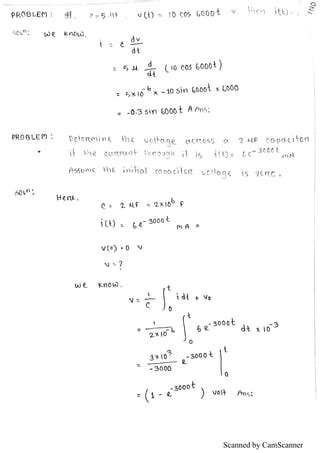 PROBLEM : If, c = 5 µF, v(t) = 10 cos 6000t v then i(t) =
Sol^n: we know,
i = c dv/dt
= 5 µ d/dt (10 cos 6000t)
= 5×10^-6 × -10 sin 6000t × 6000
= -0.3 sin 6000t A Ans:
PROBLEM : Determine the voltage across a 2 µF capacitor
if the current through it is i(t) = 6e^-3000t mA
Assume the initial capacitor voltage is zero.
Sol^n:
Here,
c = 2 µF = 2×10^6 F
i(t) = 6e^-3000t mA =
v(0) = 0 v
v = ?
we know.
v = 1/c ∫_0^t i dt + v0
= 1/(2×10^-6) ∫_0^t 6 e^-3000t dt × 10^-3
= 3×10^3/-3000 e^-3000t |_0^t
= (1 - e^-3000t) volt Ans:
Scanned by CamScanner